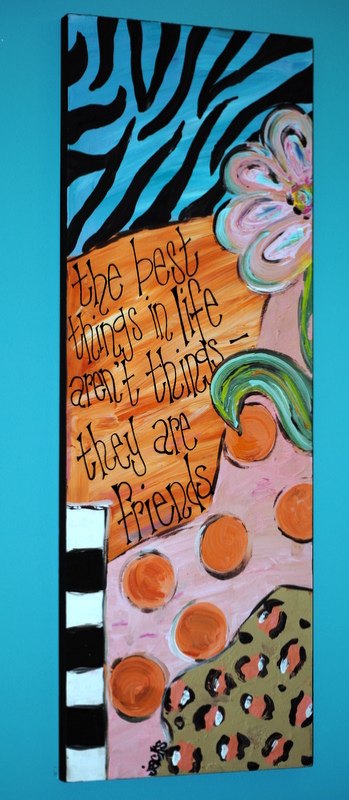 the best
things in life
aren't things —
they are
friends